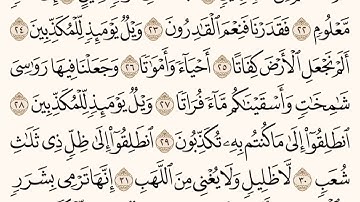 مَّعْلُومٍ ٢٢ فَقَدَرْنَا فَنِعْمَ ٱلْقَٰدِرُونَ ٢٣ وَيْلٌ يَوْمَئِذٍ لِّلْمُكَذِّبِينَ ٢٤
أَلَمْ نَجْعَلِ ٱلْأَرْضَ كِفَاتًا ٢٥ أَحْيَآءً وَأَمْوَٰتًا ٢٦ وَجَعَلْنَا فِيهَا رَوَٰسِىَ
شَٰمِخَٰتٍ وَأَسْقَيْنَٰكُم مَّآءً فُرَاتًا ٢٧ وَيْلٌ يَوْمَئِذٍ لِّلْمُكَذِّبِينَ ٢٨
ٱنطَلِقُوٓا۟ إِلَىٰ مَا كُنتُم بِهِۦ تُكَذِّبُونَ ٢٩ ٱنطَلِقُوٓا۟ إِلَىٰ ظِلٍّ ذِى ثَلَٰثِ
شُعَبٍ ٣٠ لَّا ظَلِيلٍ وَلَا يُغْنِى مِنَ ٱللَّهَبِ ٣١ إِنَّهَا تَرْمِى بِشَرَرٍ